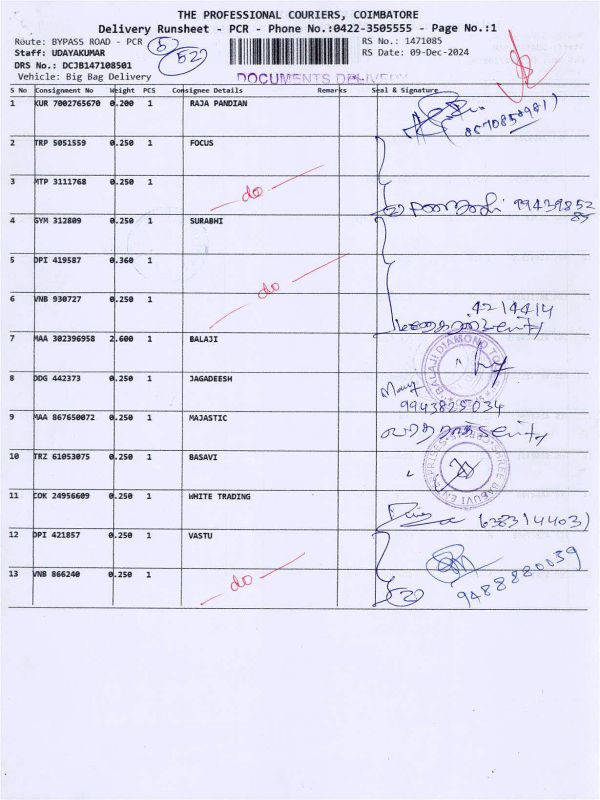 THE PROFESSIONAL COURIERS, COIMBATORE
Delivery Runsheet - PCR - Phone No.:0422-3505555 - Page No.:1
Route: BYPASS ROAD - PCR RS No.: 1471085
Staff: UDAYAKUMAR RS Date: 09-Dec-2024
DRS No.: DCJB147108501
Vehicle: Big Bag Delivery DOCUMENTS DELIVERY
S No Consignment No Weight PCS Consignee Details Remarks Seal & Signature
1 KUR 7002765670 0.200 1 RAJA PANDIAN
2 TRP 5051559 0.250 1 FOCUS
3 MTP 3111768 0.250 1 do
4 GYM 312809 0.250 1 SURABHI
5 DPI 419587 0.360 1 do
6 VNB 930727 0.250 1 4214414
7 MAA 302396958 2.600 1 BALAJI BALAJI DIAMOND
8 DDG 442373 0.250 1 JAGADEESH 9943825034
9 MAA 867650072 0.250 1 MAJASTIC
10 TRZ 61053075 0.250 1 BASAVI
11 COK 24956609 0.250 1 WHITE TRADING
12 DPI 421857 0.250 1 VASTU 9488880039
13 VNB 866240 0.250 1 do